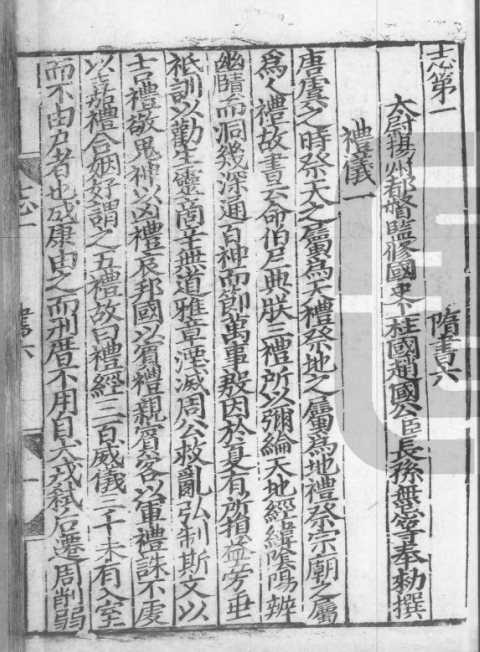 志第一　隋書六
太尉揚州都督監修國史上柱國趙國公臣長孫無忌等奉勅撰
禮儀一
唐虞之時祭天之屬爲天禮祭地之屬爲地禮祭宗廟之屬
爲人禮故書云命伯夷典朕三禮所以彌綸天地經緯陰陽辨
幽賾而洞幾深通百神而節萬事殷因於夏有所損益旁垂
祇訓以勸生靈商辛無道雅章湮滅周公救亂弘制斯文以
吉禮敬鬼神以凶禮哀邦國以賓禮親賓客以軍禮誅不虔
以嘉禮合姻好謂之五禮故曰禮經三百威儀三千未有入室
而不由户者也成康由之而刑厝不用自犬戎弑后遷周削弱